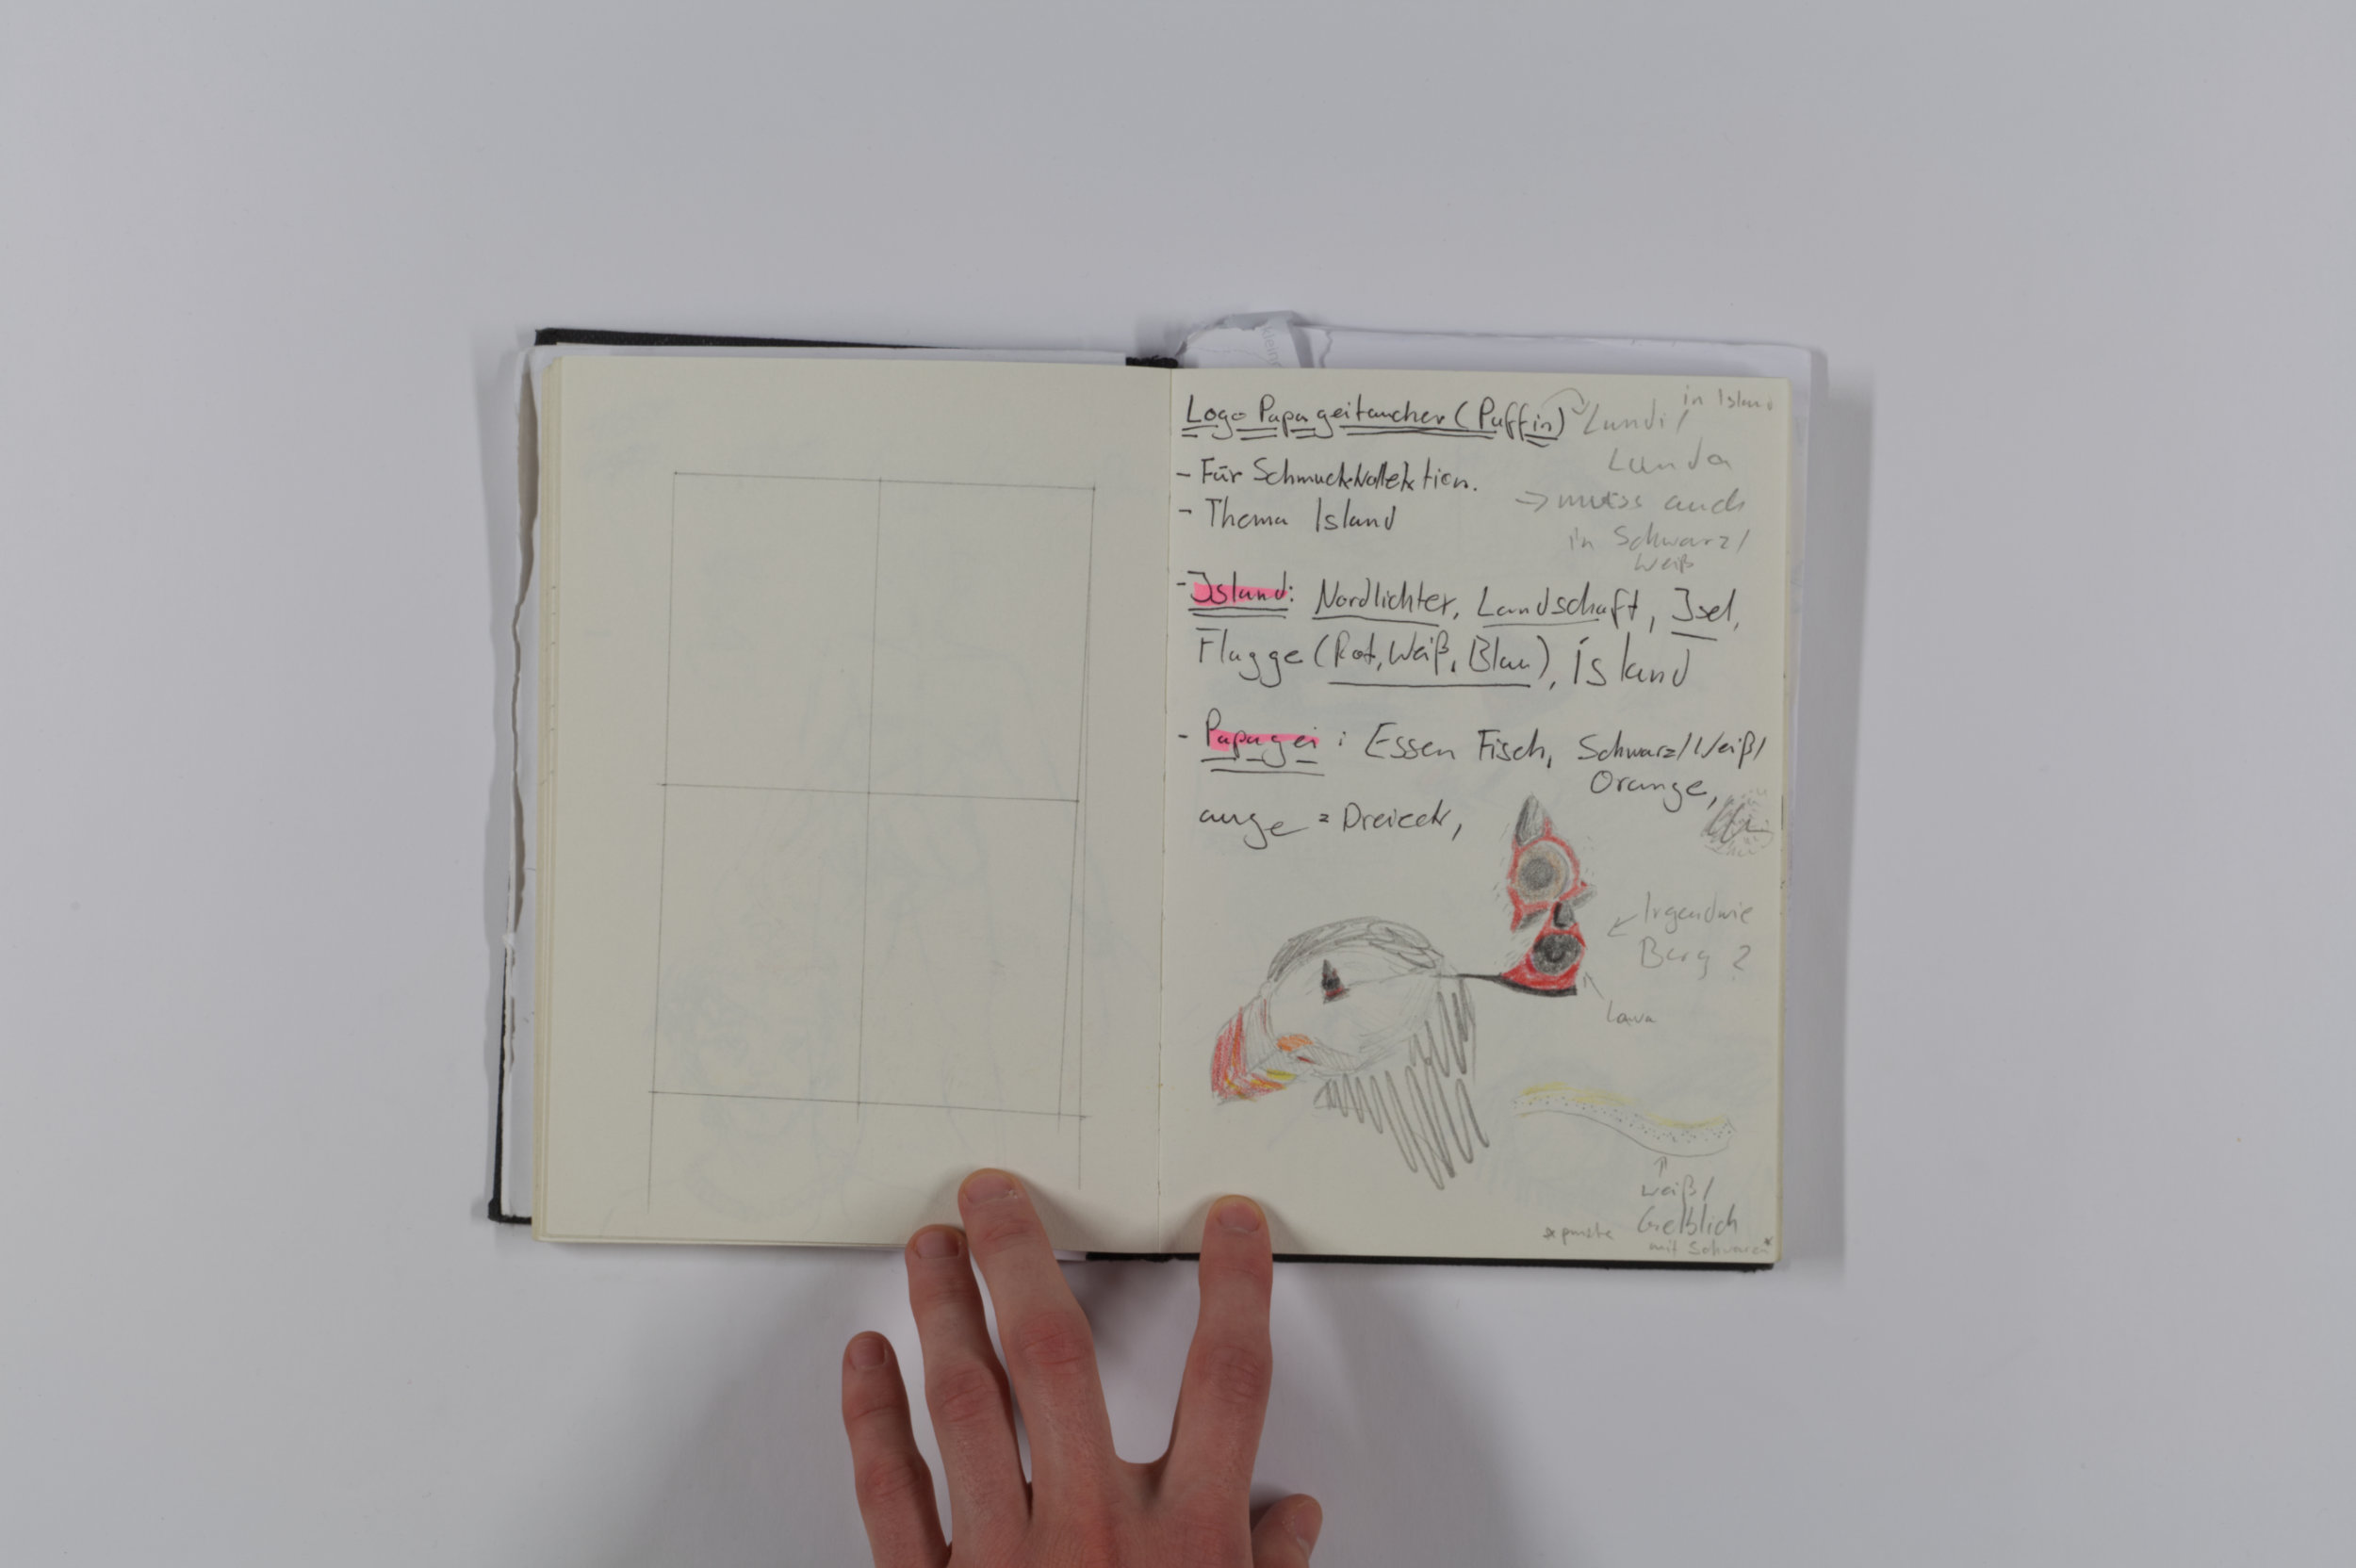 Logo Papageitaucher (Puffin)
in Island
Lundi/
Lunda
- Für Schmuckkollektion.
- Thema Island
-> muss auch
in Schwarz/
Weiß
- Island: Nordlichter, Landschaft, Isel,
Flagge (Rot, Weiß, Blau), Ísland
- Papagei: Essen Fisch, Schwarz/Weiß/
Orange,
auge = Dreieck,
Irgendwie
Berg?
Lava
weiß/
Gelblich
mit Schwarzen*
*punkte